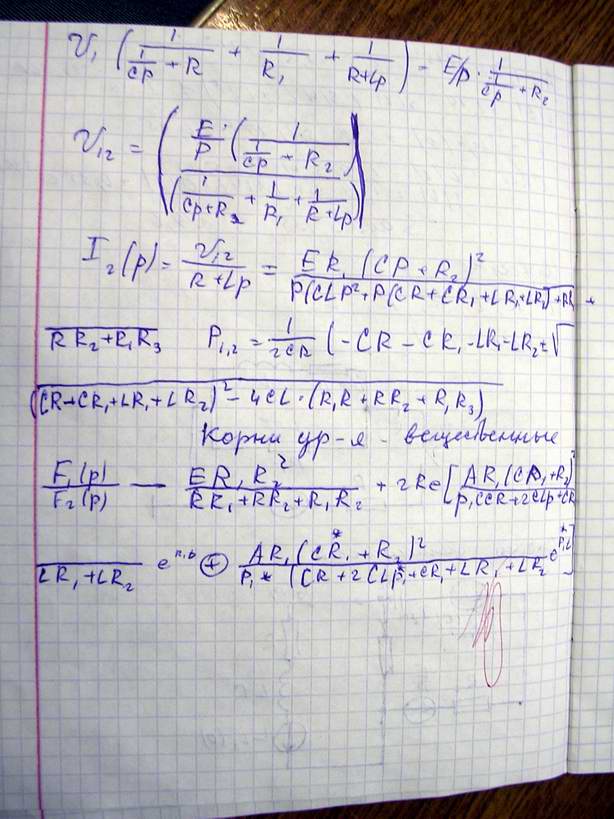 U₁ (1/(1/CP + R) + 1/R₁ + 1/(R+LP)) = E/p · 1/(1/CP + R₂)
U₁₂ = (E/P · (1/(1/CP − R₂)) / (1/(CP+R₂) + 1/R₁ + 1/(R+LP)))
I₂(p) = U₁₂/(R+LP) = ER₁(CP+R₂)² / P(CLP²+P(CR+CR₁+LR₁+LR₁)+RR₁ +
RR₂+R₁R₃   P₁,₂ = 1/2CR (−CR−CR₁−LR₁−LR₂±√
(CR+CR₁+LR₁+LR₂)²−4CL·(R₁R+RR₂+R₁R₃)
Корни ур-я - вещественные
F₁(p)/F₂(p) — ER₁R₂²/(RR₁+RR₂+R₁R₂) + 2Re[AR₁(CP₁+R₂)²/P₁CCR+2CLp+CR
LR₁+LR₂ e ⊕ AR₁(CR₁*+R₂)²/P₁*(CR+2CLP₁*+CR₁+LR₁+LR₂ e]